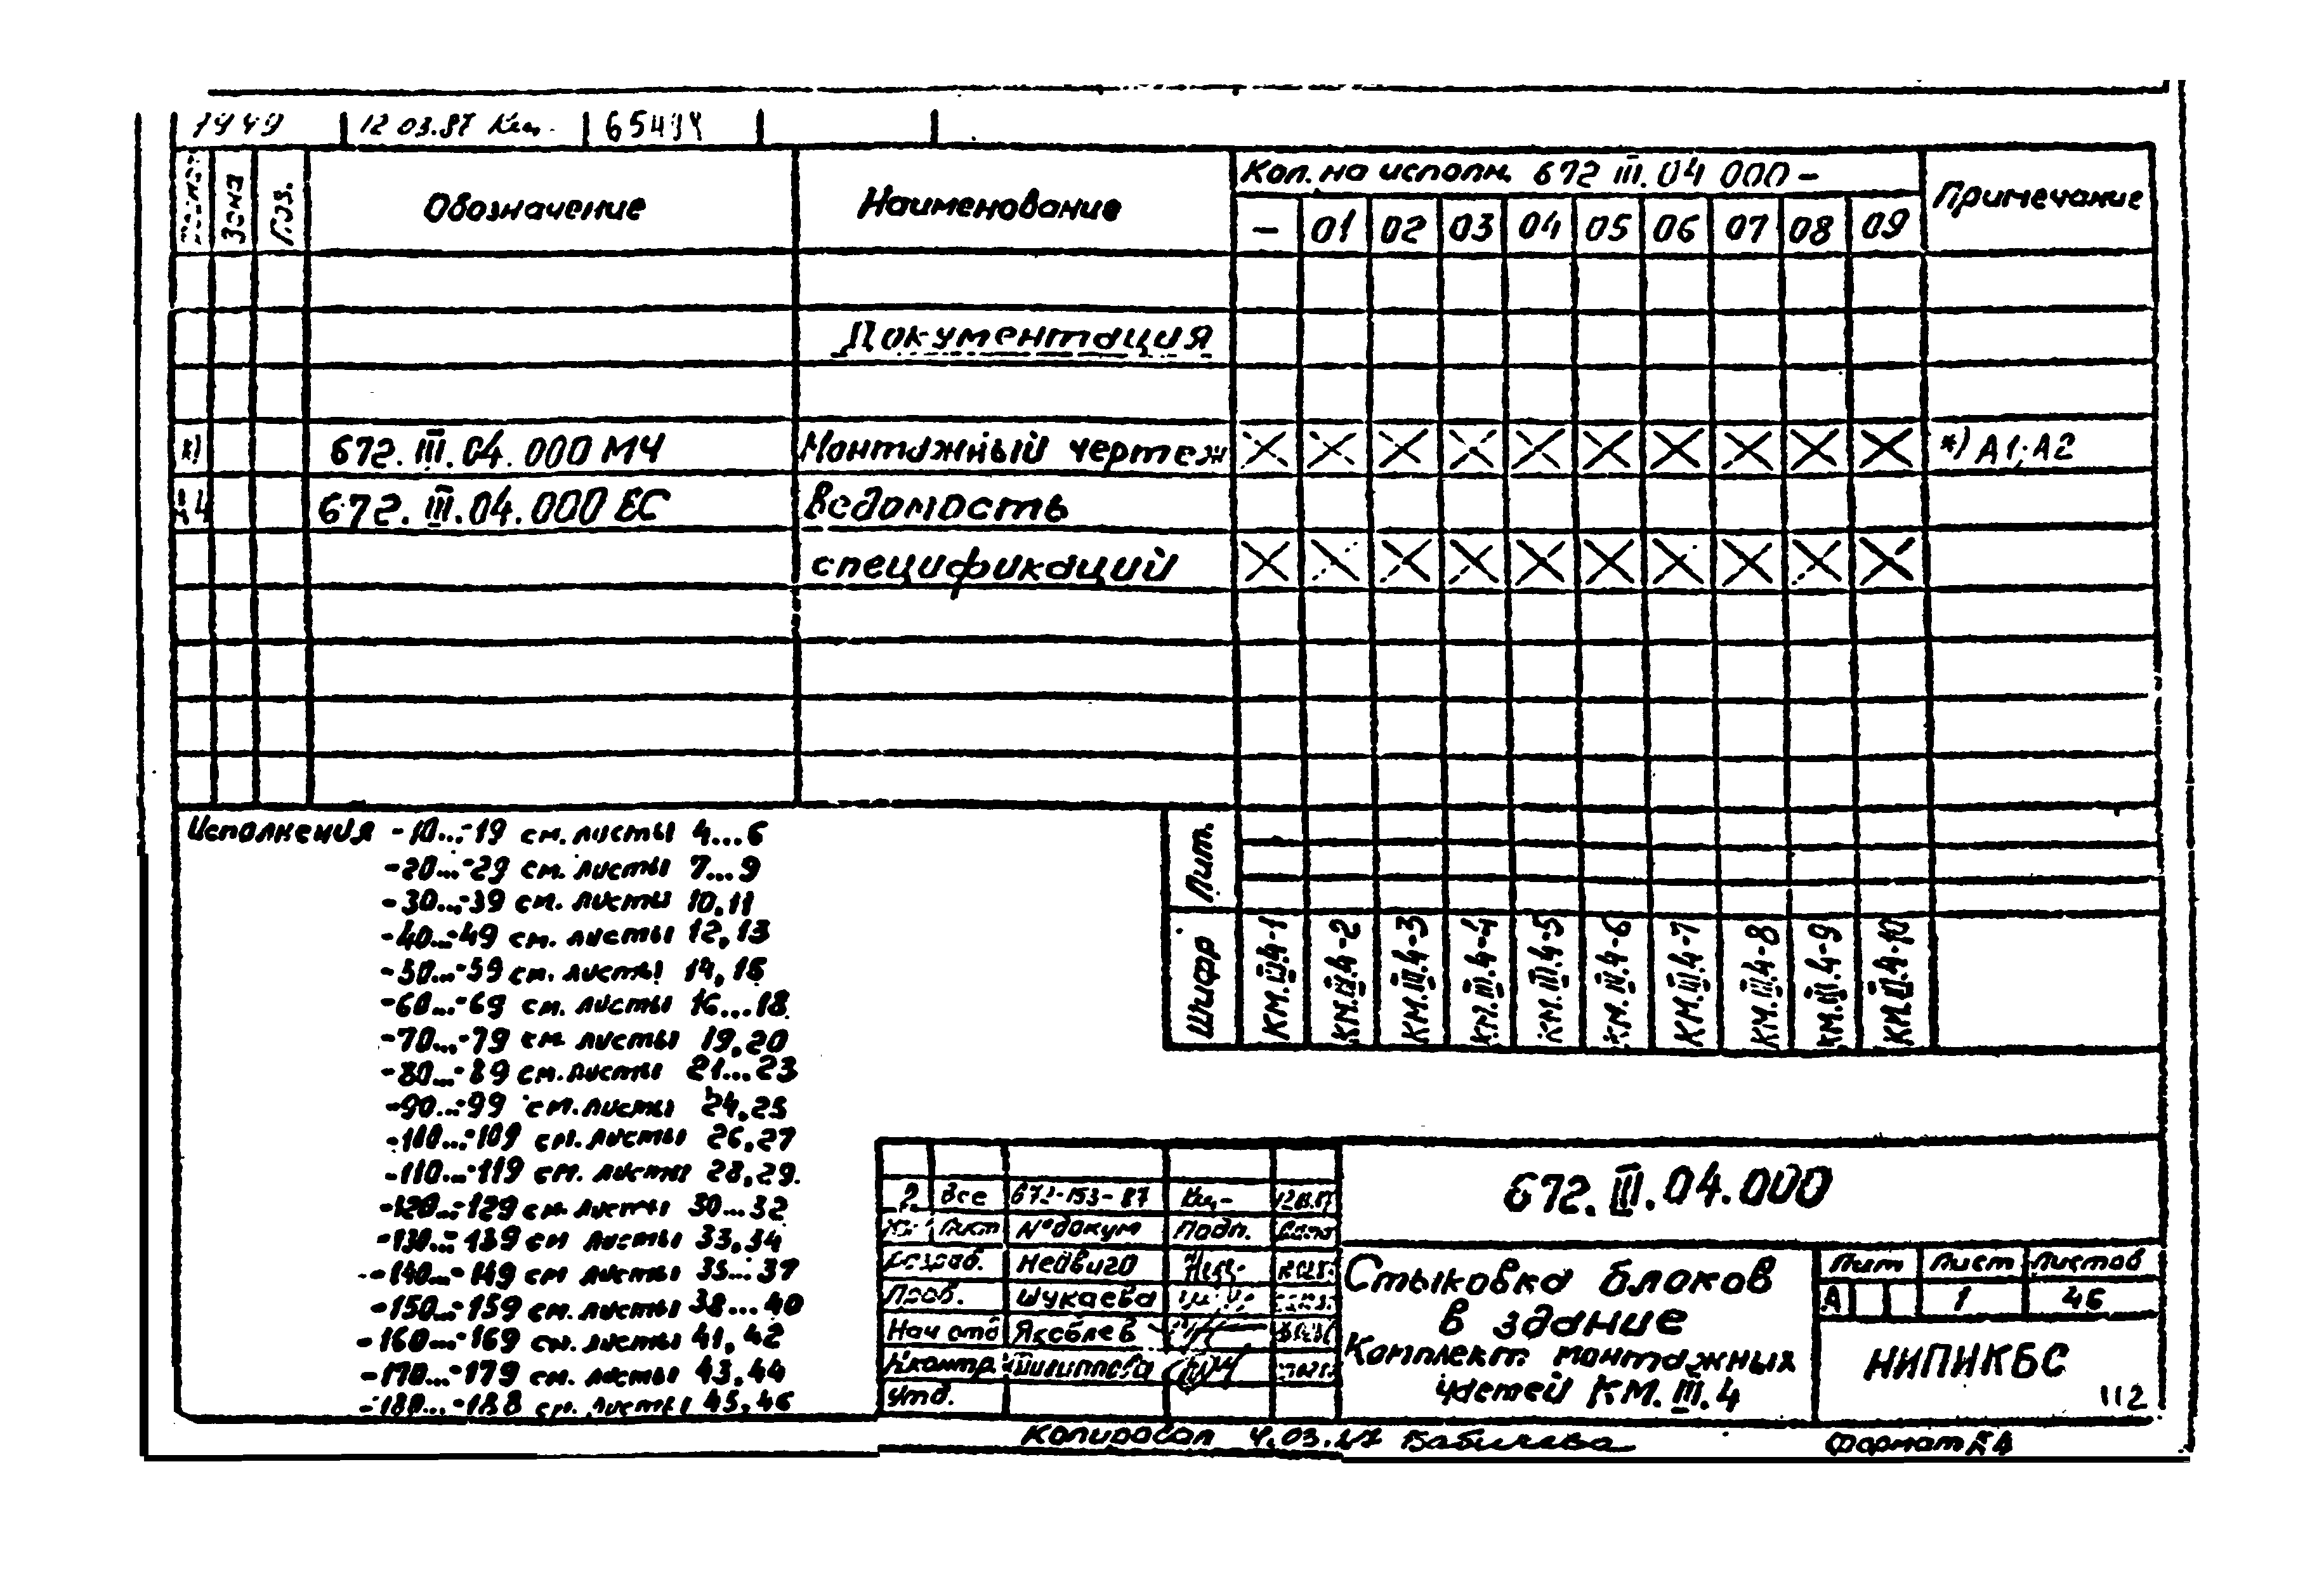 12 03.87
Зона
Поз.
Обозначение
Наименование
Кол. на исполн. 672 III.04 000 -
- 01 02 03 04 05 06 07 08 09
Примечание
Документация
*) 672.III.04.000 МЧ Монтажный чертеж *) А1; А2
А4 672.III.04.000 ЕС Ведомость
спецификаций
Исполнения -10...-19 см. листы 4...6
-20...-29 см. листы 7...9
-30...-39 см. листы 10,11
-40...-49 см. листы 12,13
-50...-59 см. листы 14,15
-60...-69 см. листы 16...18
-70...-79 см листы 19,20
-80...-89 см. листы 21...23
-90...-99 см. листы 24,25
-100...-109 см. листы 26,27
-110...-119 см. листы 28,29.
-120...-129 см. листы 30...32
-130...-139 см листы 33,34
-140...-149 см листы 35...37
-150...-159 см. листы 38...40
-160...-169 см. листы 41,42
-170...-179 см. листы 43,44
-180...-188 см. листы 45,46
Лит.
Шифр
КМ.III.4-1
КМ.III.4-2
КМ.III.4-3
КМ.III.4-4
КМ.III.4-5
КМ.III.4-6
КМ.III.4-7
КМ.III.4-8
КМ.III.4-9
КМ.III.4-10
2 Все 672-153-87
Лист № докум Подп. Дата
Разраб. Недвига
Пров. Шукаева
Нач отд Яковлев
Н.контр. Филиппова
Утв.
672.III.04.000
Стыковка блоков
в здание
Комплект монтажных
частей КМ.III.4
Лит Лист Листов
А 1 46
НИПИКБС
112
Копировал
Формат